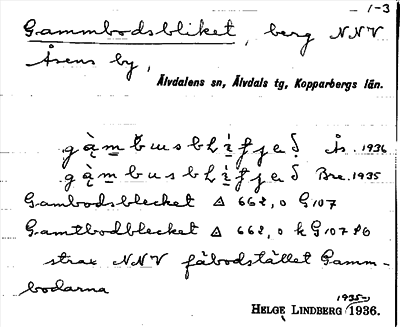 1-3
Gammbodsbliket, berg NNV
Åsens by,
Älvdalens sn, Älvdals tg, Kopparbergs län.
Ås. 1936
Bre. 1935
Gambodsblecket Δ 662,0 G107
Gamtbodblecket Δ 662,0 k G107 86
strax NNV fäbodstället Gamm-
bodarna
1935-
HELGE LINDBERG 1936.